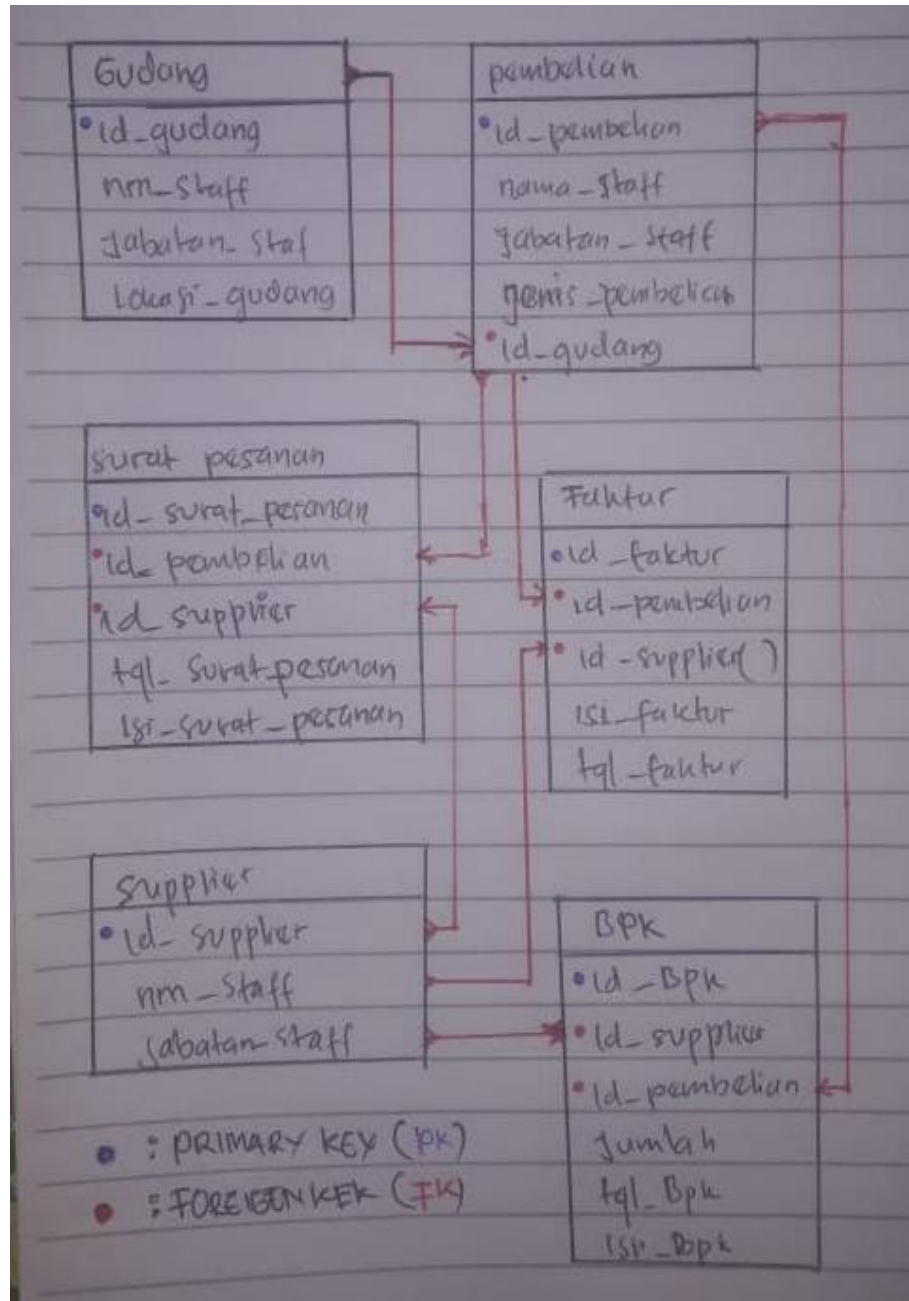 Gudang
id_gudang
nm_Staff
Jabatan_Staf
Lokasi_gudang
pembelian
id_pembelian
nama_Staff
Jabatan_Staff
Jenis_pembelian
id_gudang
surat pesanan
id_surat_pesanan
id_pembelian
id_supplier
tgl_Surat_pesanan
Isi_surat_pesanan
Faktur
id_faktur
id_pembelian
id_supplier()
isi_faktur
tgl_faktur
Supplier
id_supplier
nm_Staff
Jabatan_Staff
BPK
id_BPK
id_supplier
id_pembelian
Jumlah
tgl_Bpk
isi_Bpk
: PRIMARY KEY (PK)
: FOREIGEN KEK (FK)